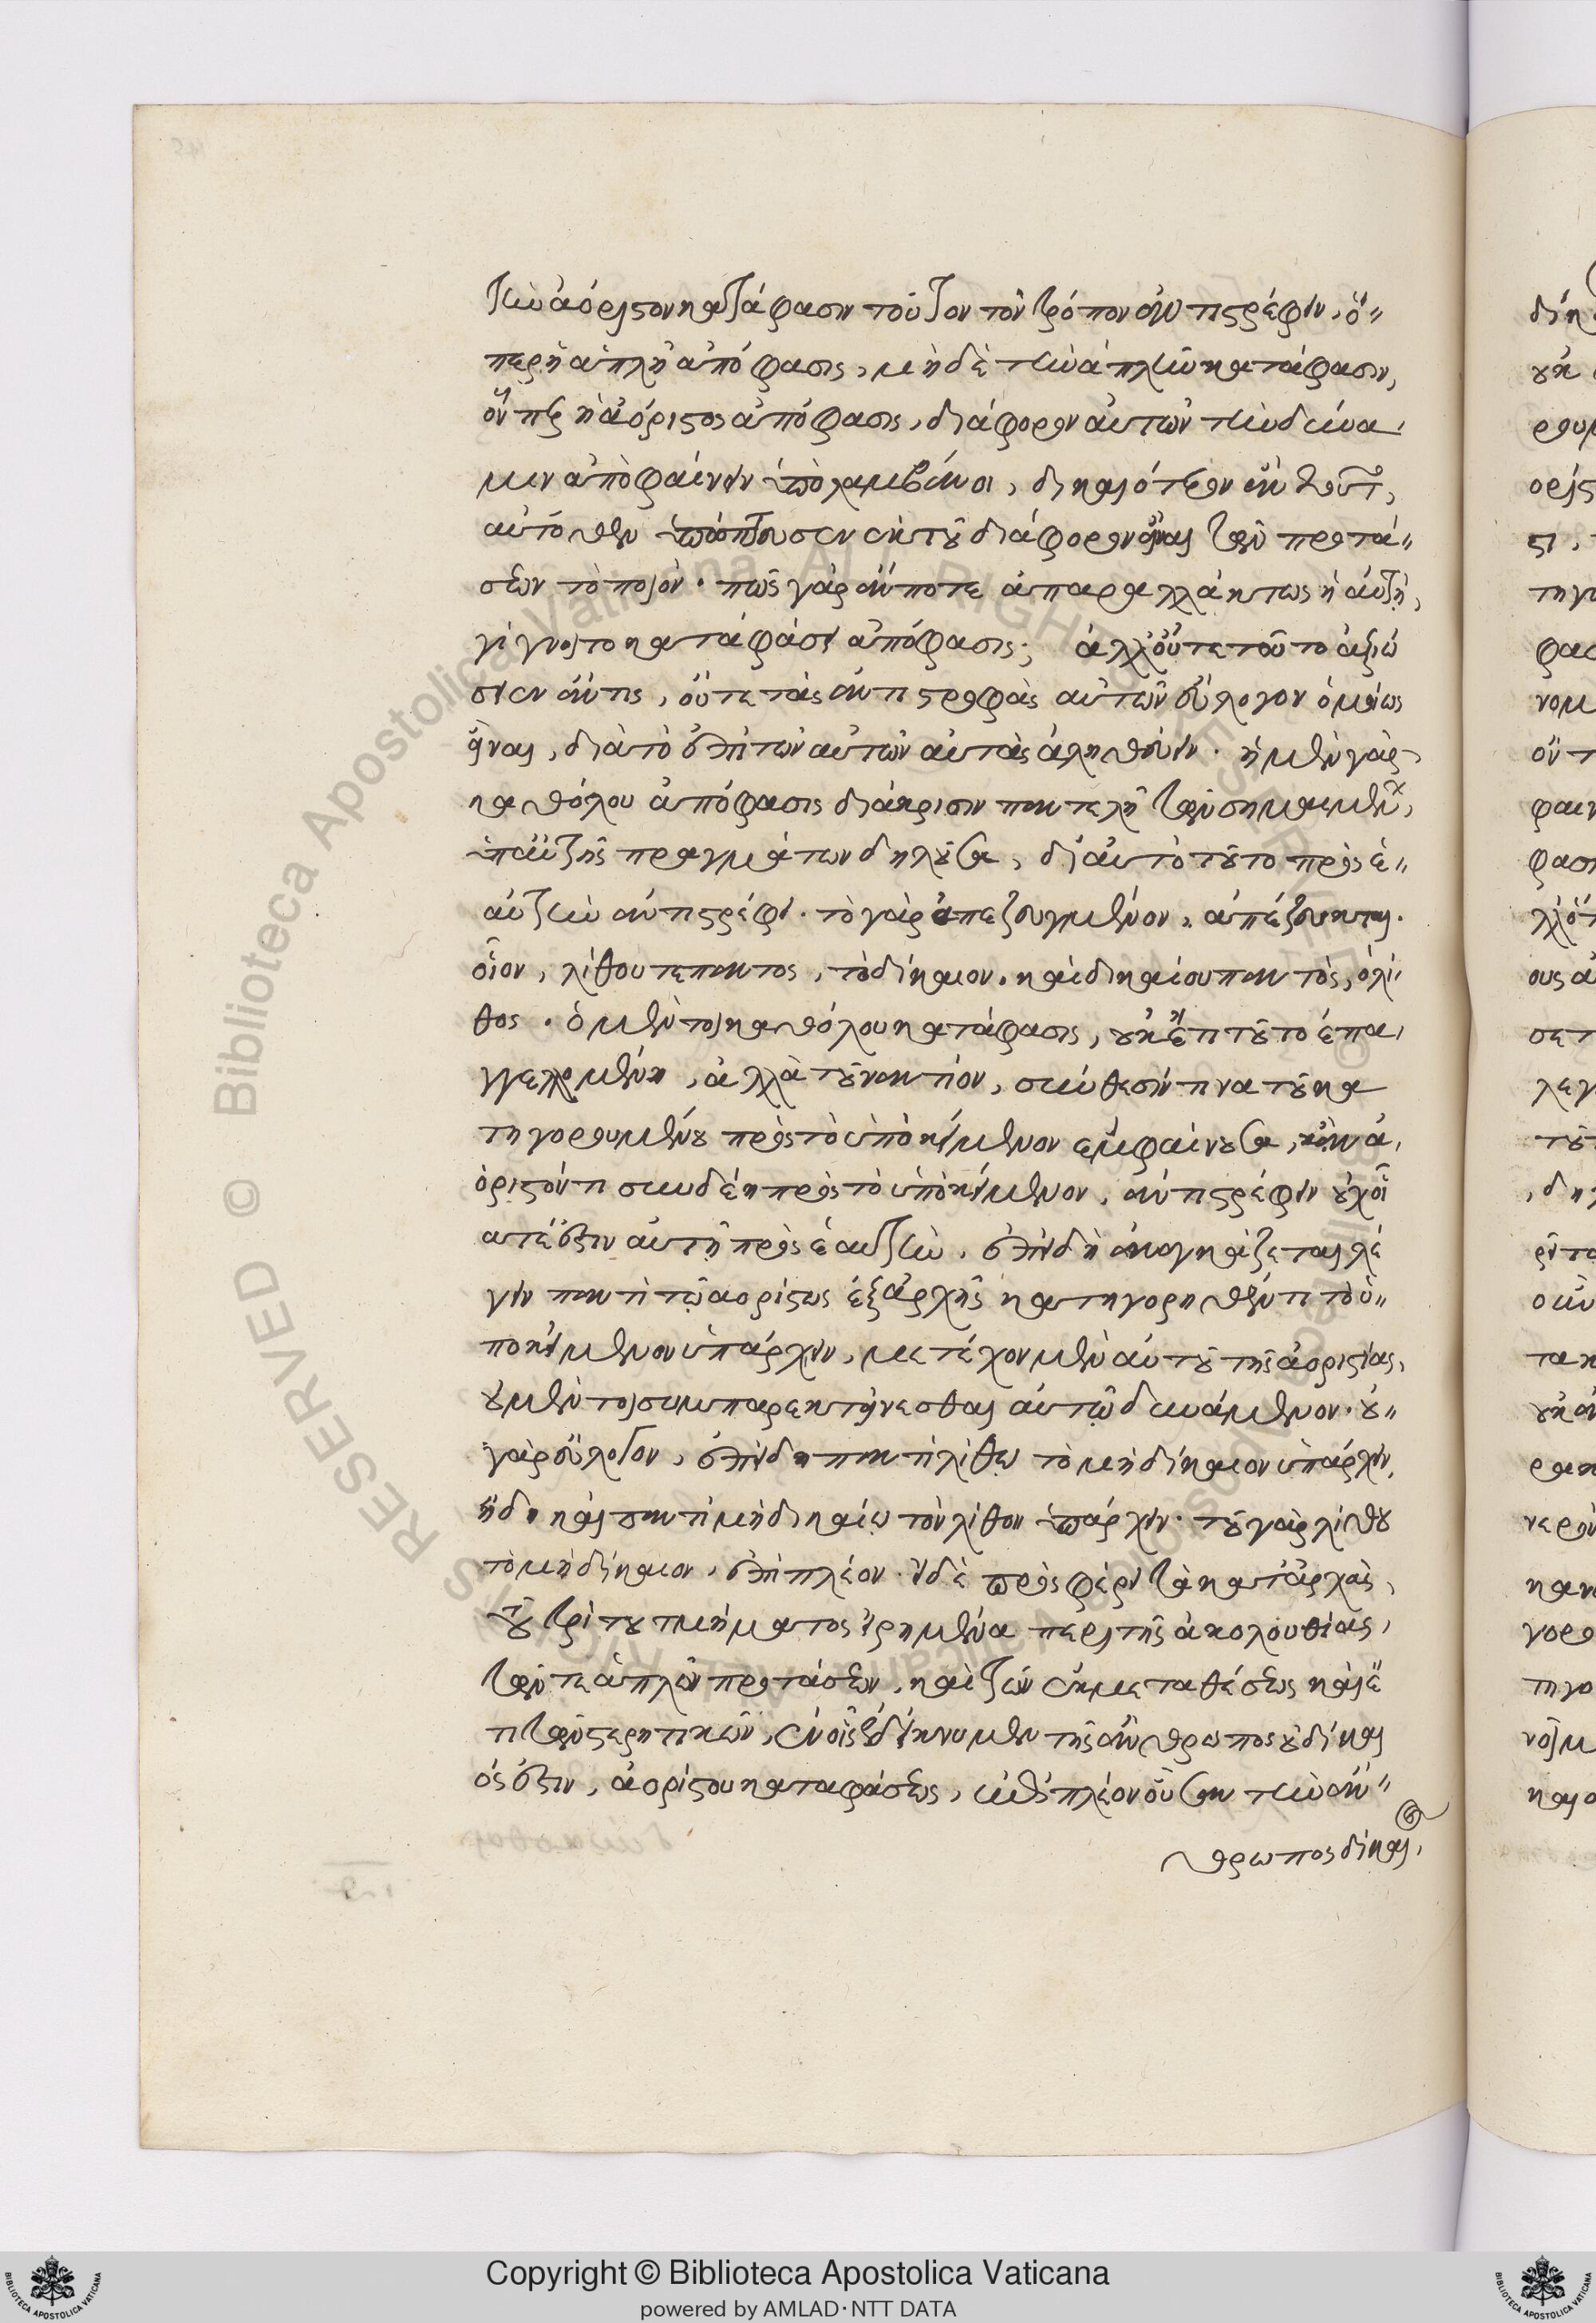 τὴν ἀόριστον κατάφασιν τοῦτον τὸν τρόπον ἀντιστρέφειν, ὅ-
περ ἡ ἁπλῆ ἀπόφασις, μηδὲ τὴν ἁπλῆν κατάφασιν,
ὅνπερ ἡ ἀόριστος ἀπόφασις, διάφορον αὐτῶν τὴν δύνα
μιν ἀποφαίνειν ὑπολαμβάνοι, δικαιότερον ἂν
αὐτόθεν ἐκ τοῦ διάφορον εἶναι τῶν προτά-
σεων τὸ ποιόν. πῶς γὰρ ἄν ποτε ἀπαραλλάκτως ἡ αὐτὴ
γίγνοιτο καταφάσει ἀπόφασις; ἀλλ' οὔτε τοῦτο ἀξιώ
σειεν ἄν τις, οὔτε τὰς ἀντιστροφὰς αὐτῶν εὔλογον ὁμοίως
εἶναι, διὰ τὸ ἐπὶ τῶν αὐτῶν αὐτὰς ἀληθεύειν. ἡ μὲν γὰρ
καθόλου ἀπόφασις διάκρισιν παντελῆ τῶν σημαινομένων
ὑπ' αὐτῆς πραγμάτων δηλοῦσα, δι' αὐτὸ τοῦτο πρὸς ἑ-
αυτὴν ἀντιστρέφει. τὸ γὰρ ἀπεζευγμένον, ἀπέζευκται.
οἷον, λίθου τε παντὸς, τὸ δίκαιον. καὶ δικαίου παντὸς, ὁ λί
θος. ὁ μέντοι καθόλου κατάφασις, οὐκ ἔτι τοῦτο ἐπα
γγελλομένη, ἀλλὰ τοὐναντίον, σύνθεσίν τινα τοῦ κα
τηγορουμένου πρὸς τὸ ὑποκείμενον ἐμφαίνουσα, κἂν ἀ
όριστόν τι συνδέῃ πρὸς τὸ ὑποκείμενον, ἀντιστρέφειν οὐχ οἵ
α τέ ἐστιν αὐτὴ πρὸς ἑαυτὴν. ἐπειδὴ ἀναγκάζεται λέ
γειν παντὶ τῷ ἀορίστως ἐξαρχῆς κατηγορηθέντι τὸ ὑ-
ποκείμενον ὑπάρχειν, μετέχον μὲν αὐτοῦ τῆς ἀοριστίας,
οὐ μέντοι συμπαρεκτείνεσθαι αὐτῷ δυνάμενον. οὐ-
γὰρ εὔλογον, ἐπειδὴ παντὶ λίθῳ τὸ μὴ δίκαιον ὑπάρχειν,
ἤδη καὶ παντὶ μὴ δικαίῳ τὸν λίθον ὑπάρχειν. τοῦ γὰρ λίθου
τὸ μὴ δίκαιον, ἐπὶ πλέον. εἰ δὲ προσφέρει τὰ κατ' ἀρχὰς
τοῦ τρίτου τμήματος εἰρημένα περὶ τῆς ἀκολουθίας,
τῶν τε ἁπλῶν προτάσεων, καὶ τῶν ἐκ μεταθέσεως καὶ ἔ
τι τῶν στερητικῶν, ἐν οἷς ἐδείκνυμεν τῆς ἄνθρωπος οὐ δίκαι
ός ἐστιν, ἀορίστου καταφάσεως, ἐπὶ πλέον οὖσαν τὴν ἄν-
θρωπος δίκαι